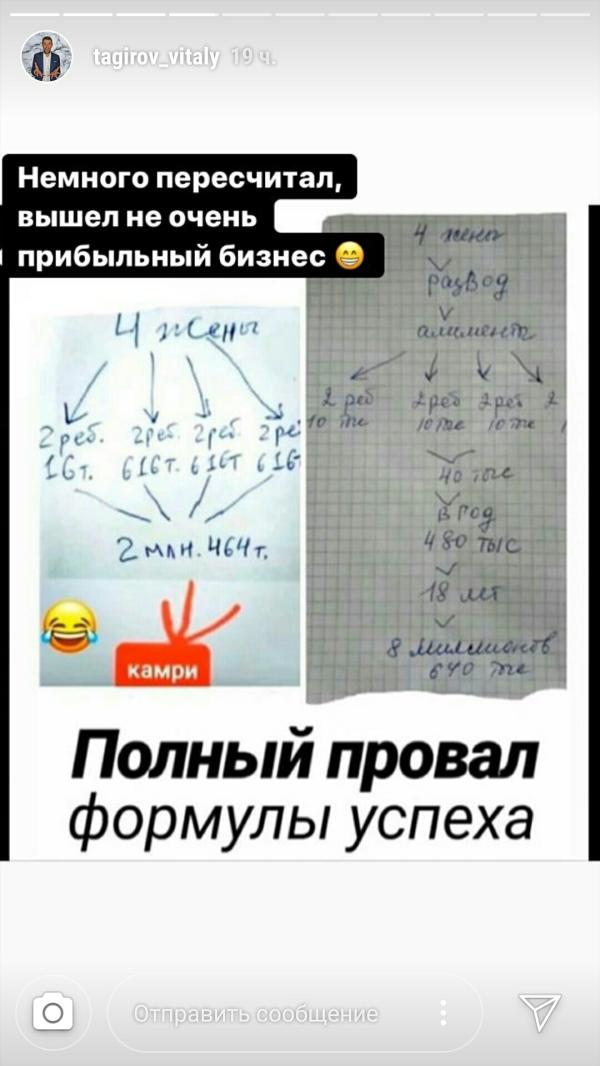 tagirov_vitaly 19 ч.
Немного пересчитал,
вышел не очень
прибыльный бизнес
4 жены
2 реб. 2 реб. 2 реб. 2 ре
16т. 616т. 616т 616т
2 млн. 464т.
камри
4 жены
развод
алименты
2 реб 2 реб 2 реб 2
10 тыс 10 тыс 10 тыс 1
40 тыс
в год
480 тыс
18 лет
8 миллионов
640 тыс
Полный провал
формулы успеха
Отправить сообщение